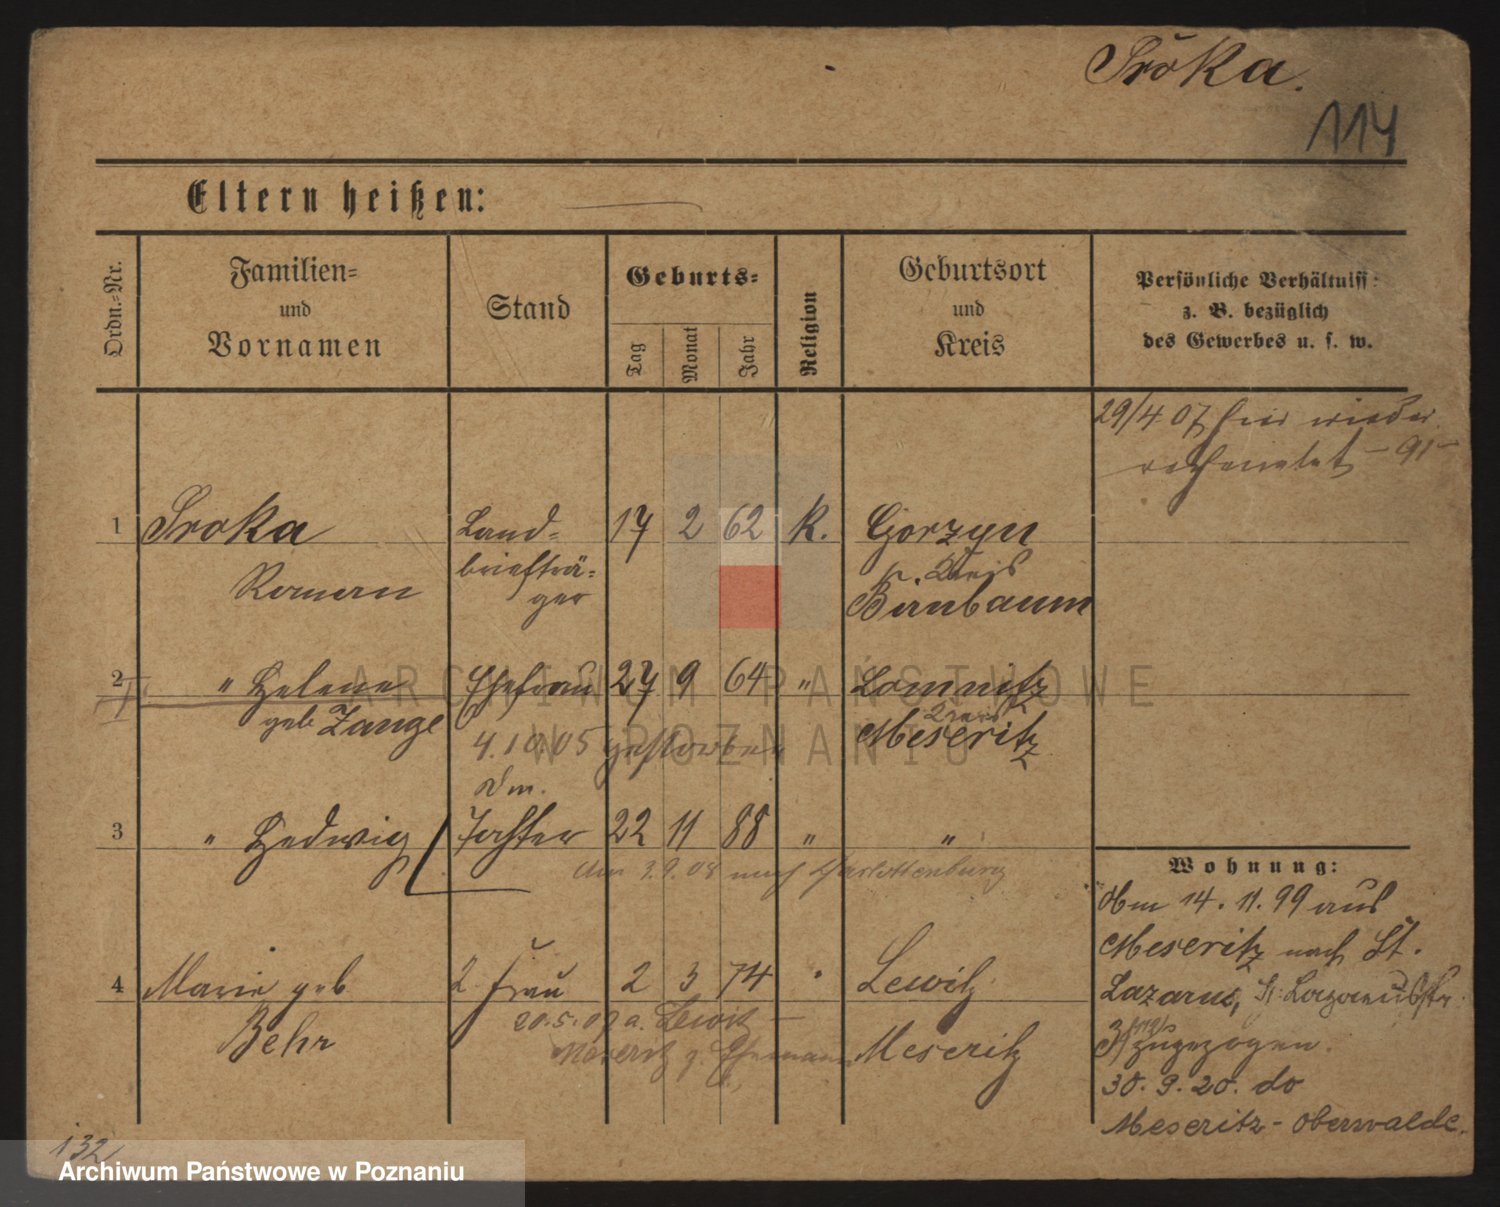 Sroka.
114
Eltern heißen:
Ordn.-Nr.
Familien-
und
Vornamen
Stand
Geburts-
Tag
Monat
Jahr
Religion
Geburtsort
und
Kreis
Persönliche Verhältniss:
z. B. bezüglich
des Gewerbes u. s. w.
29/4 07 hier wieder
verheiratet - 91 -
1 Sroka Land- 17 2 62 K. Gorzyn
Roman briefträ- Kreis
ger Birnbaum
2 " Helene Ehefrau 27 9 64 " Lomnitz
geb Zange Kreis
4.10.05 gestorben Meseritz
3 " Hedwig Tochter 22 11 88 " "
Am 3.9.08 nach Charlottenburg
Wohnung:
Am 14.11.99 aus
Meseritz nach St.
Lazarus, St. Lazarusstr.
zugezogen.
30.9.20. do
Meseritz-Obrawalde.
4 Marie geb 2. Frau 2 3 74 " Lewitz
Behr 20.5.07 a. Lewitz
Meseritz z. Ehemann Meseritz
132
ARCHIWUM PAŃSTWOWE
W POZNANIU
Archiwum Państwowe w Poznaniu